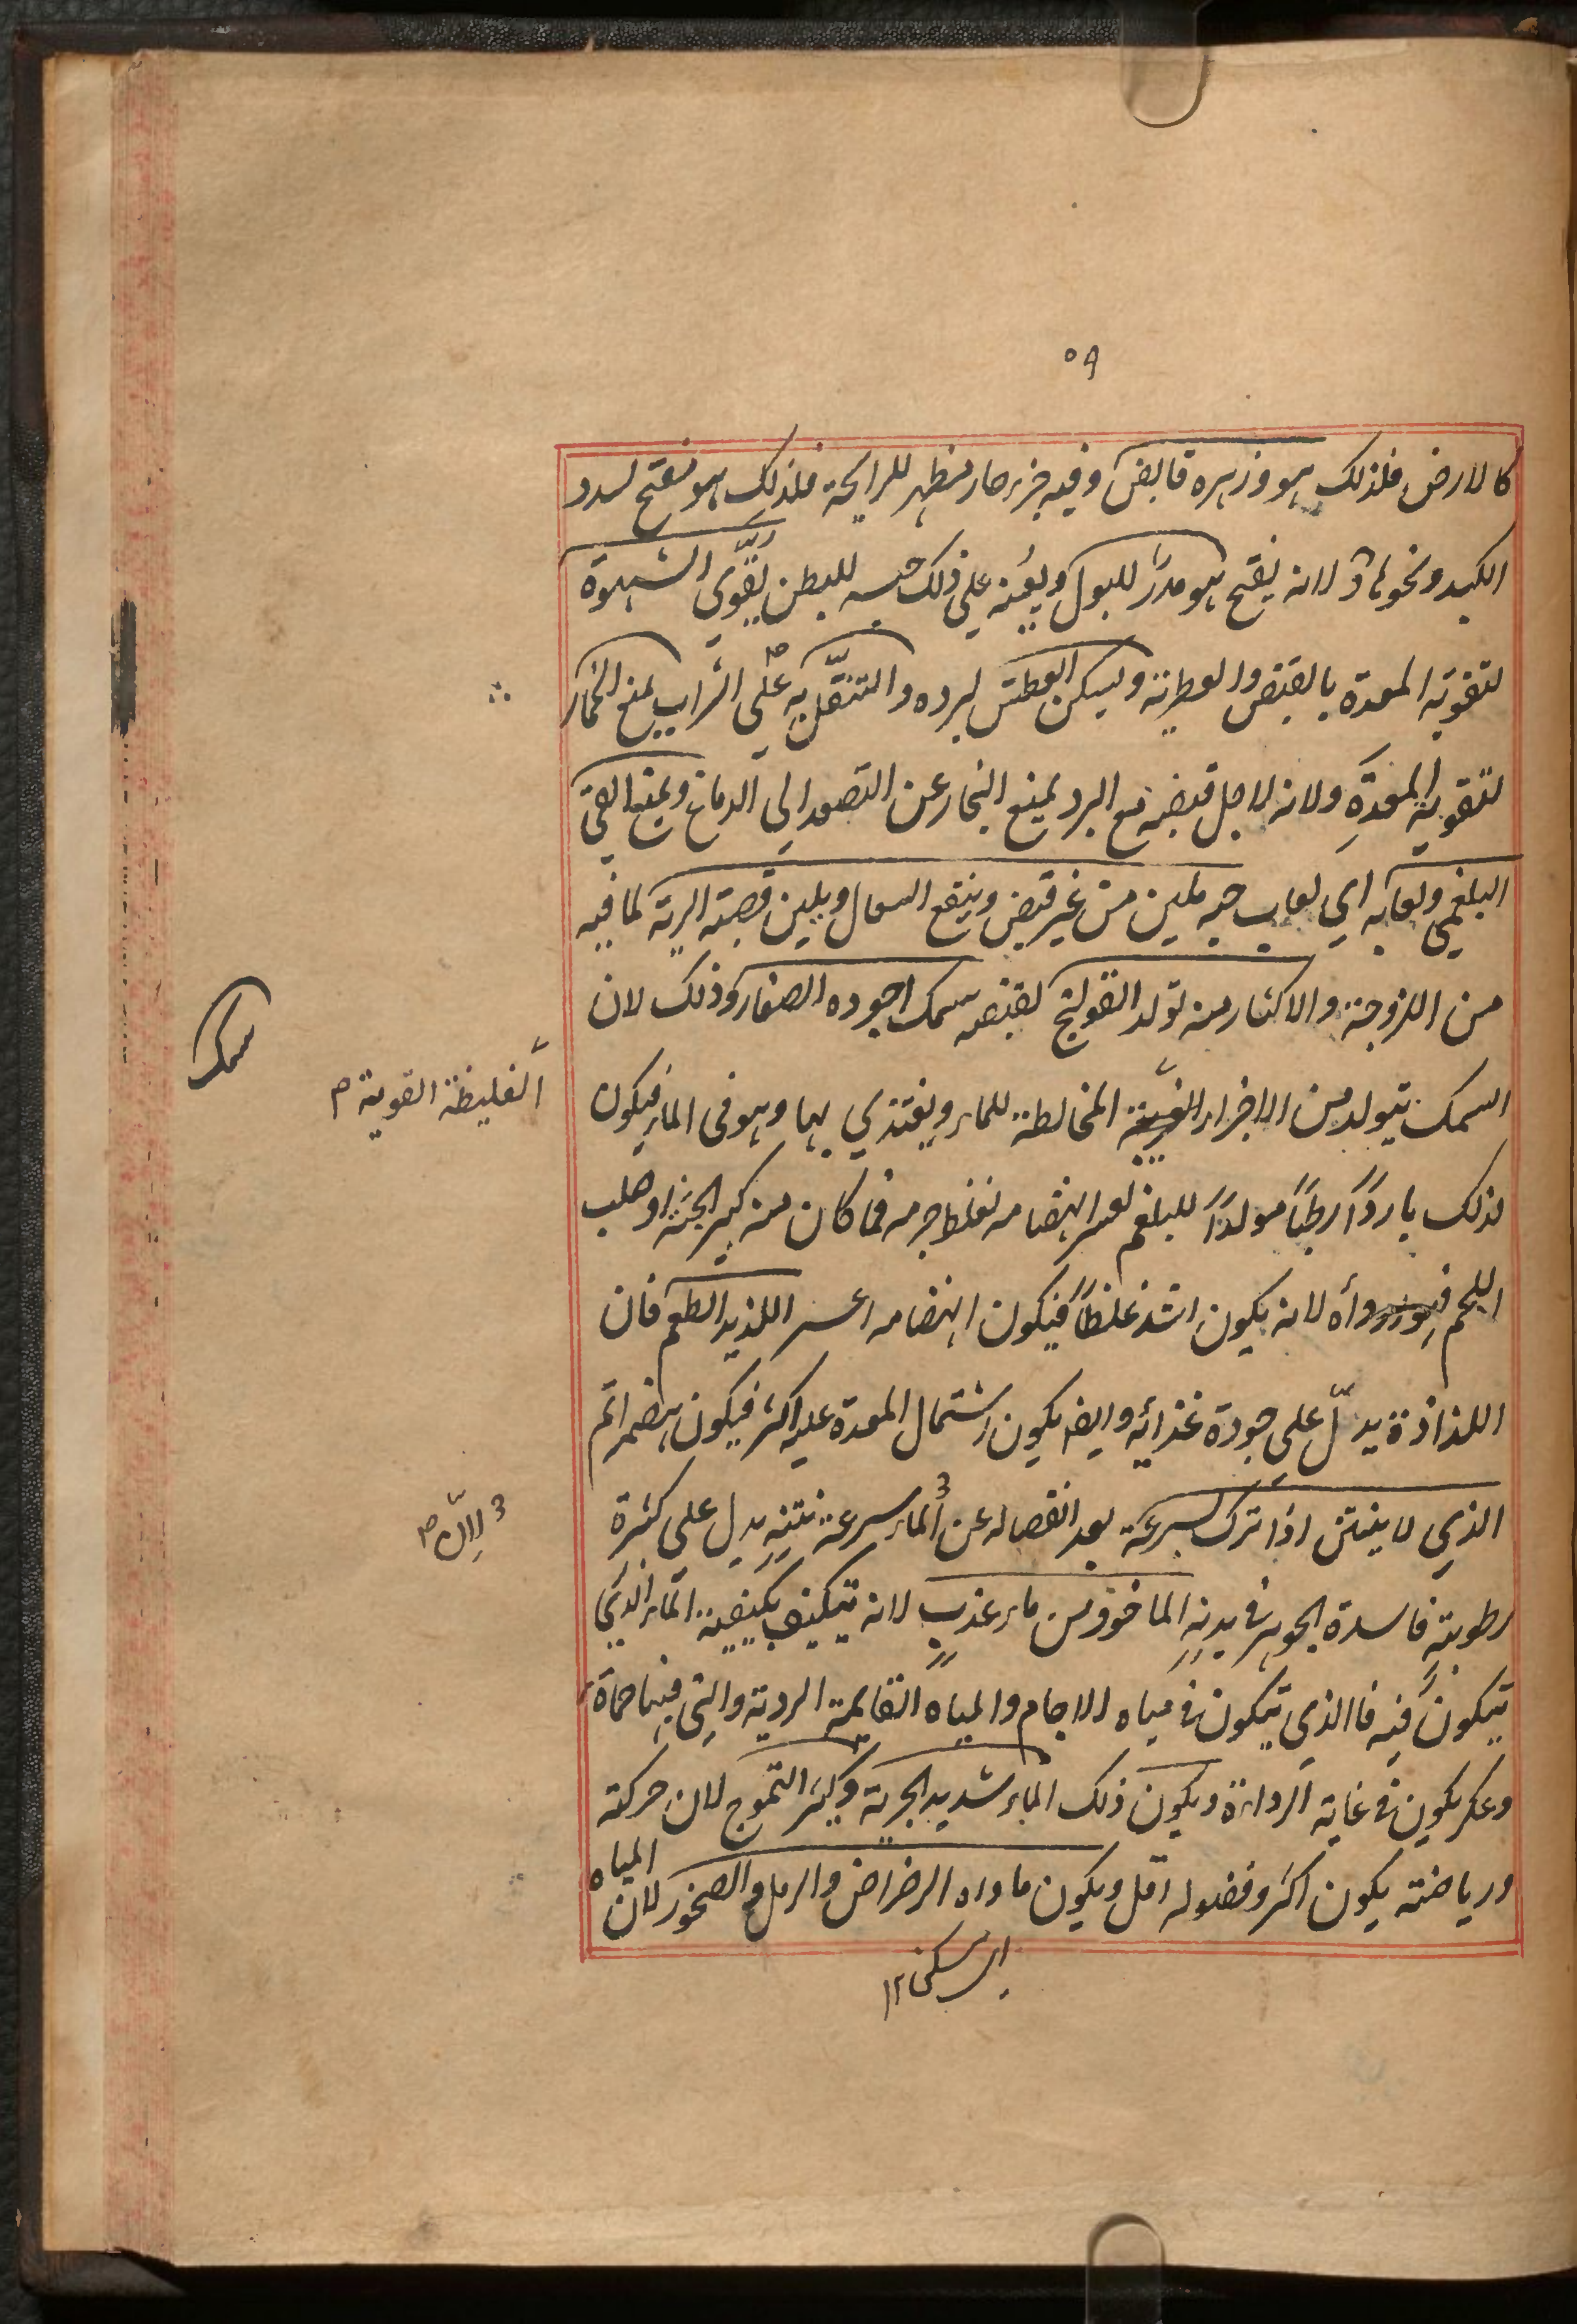 ٥٩
كالارض فلذلك هو وزهره قابض وفيه جزء حار مظهر للرايحة فلذلك هو مفتح لسدد
الكبد ونحوها ولانه يفتح هو مدرّ للبول ويعينه على ذلك حبسه للبطن يقوّي الشهوة
لتقوية المعدة بالقبض والعطرية ويسكن العطش لبرده والتنقّل به على الشراب يمنع الخمار
لتقوية المعدة ولانه لاجل قبضه مع البرد يمنع البخار عن التصعد الى الدماغ ويمنع القى
البلغمي ولعابه اى لعاب حبه ملين من غير قبض وينفع السعال ويلين قصبة الرية لما فيه
من اللزوجة والاكثار منه تولد القولنج لقبضه سمك اجوده الصغار وذلك لان
السمك يتولد من الاجزاء المخالطة للماء ويغتذي بها وهو فى الماء فيكون
الغليظة القوية م
سمك
لذلك باردًا رطبًا مولدًا للبلغم لعسر انهضامه لغلظ جرمه فما كان منه كبير الجثة او صلب
اللحم لانه يكون اشد غلظًا فيكون انهضامه اعسر اللذيذ الطعم فان
اللذاذة يدلّ على جودة غذائه وايضا يكون اشتمال المعدة عليه اكثر فيكون هضمه اتم
الذي لا ينتن اذا ترك بسرعة بعد انفصاله عن الماء سرعة نتنه يدل على كثرة
لانّ م
رطوبته فاسدة الجوهر فى بدنه الماخوذ من ماء عذب لانه يتكيف بكيفية الماء الذي
يتكون فيه فاالذي يتكون فى مياه الاجام والمياه القايمة الردية والتى فيها حماة
وعكر يكون فى غاية الرداءة ويكون ذلك الماء شديد الجرية وكثير التموج لان حركته
ورياضته يكون اكثر وفضوله اقل ويكون ماواه الرضراض والرمل والصخور لان المياه
اى مسكنه ١٢